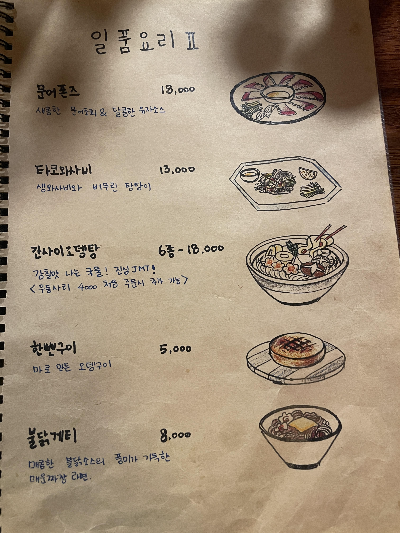 일품요리 Ⅱ
문어폰즈 18,000
새콤한 문어초회 & 달콤한 유자소스
타코와사비 13,000
생와사비와 버무린
간사이오뎅탕 6종-18,000
감칠맛 나는 국물! 진심 JMT!
<우동사리 4000 처음 주문시 추가 가능>
한뻰구이 5,000
마로 만든 오뎅구이
불닭게티 8,000
매콤한 불닭소스의 풍미가 가득한
매운짜장 라면.